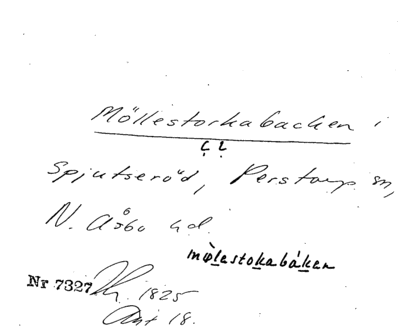 Möllestorkabacken i
Spjutseröd, Perstorp sn,
N. Åsbo hd.
mø̀lestokabáken
Nr 7327
1825
18.